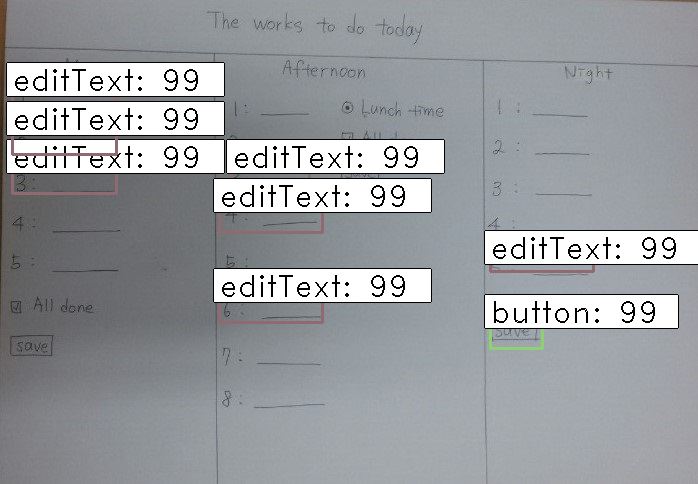 The works to do today
Afternoon
Night
editText: 99
editText: 99
editText: 99
3:
4:
5:
All done
save
1:
Lunch time
editText: 99
editText: 99
4:
5:
editText: 99
6:
7:
8:
1:
2:
3:
4:
editText: 99
button: 99
save